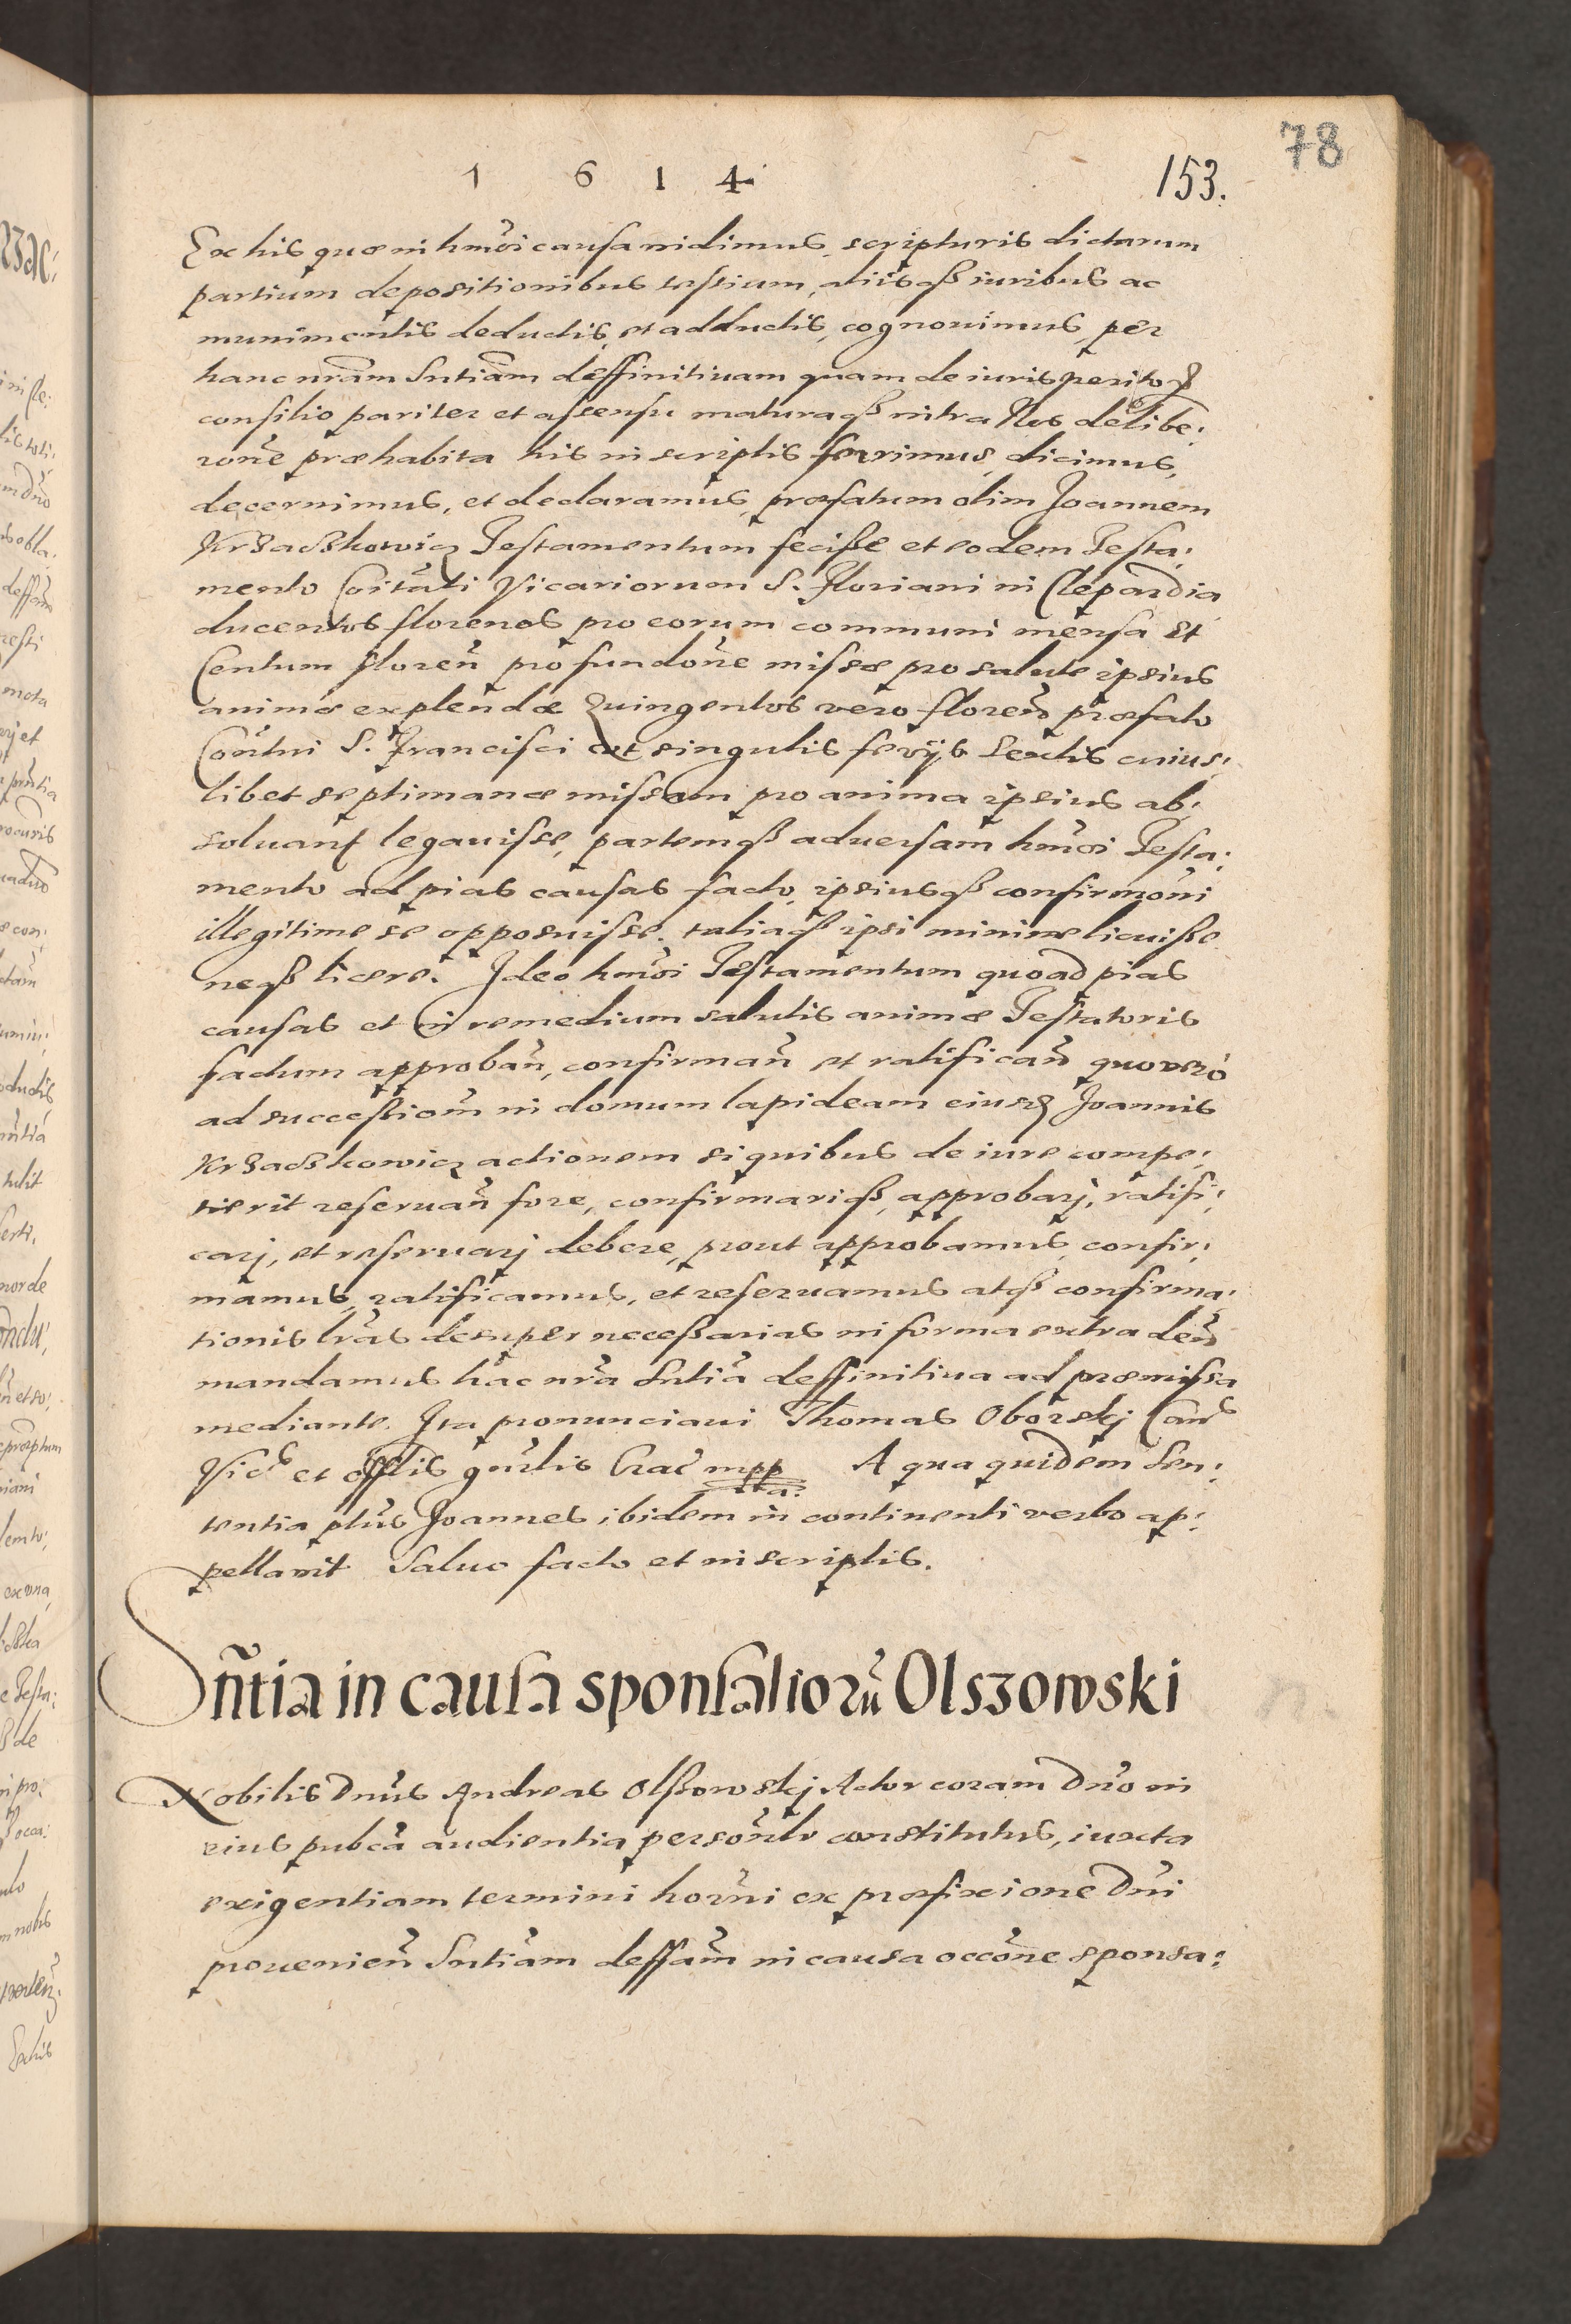 78
1 6 1 4
153.
Ex his quæ in hmõi causa uidimus, scripturis dictarum
partium depositionibus testium, aliisqß iuribus ac
munimentis deductis, et adductis, cognouimus, per
hanc nrãm Sntiãm deffinitiuam quam de iuris peritoꝝ
consilio pariter et assensu maturaqß intra Nos delibe:
rone præhabita his in scriptis ferrimus, dicimus,
decernimus, et declaramus, præfatum olim Joannem
Testamentum fecisse et eodem Testa:
mento Coitãti Vicariorum S. Floriani in Clepardia
ducentos florenos pro eorum communi mensa Et
Centum floreñ pro fundone missæ pro salute ipsius
animæ explendæ Quingentos vero floreñ præfato
Conũtui S. Francisci ut singulis ferijs Sextis cuius:
libet septimanæ missam pro anima ipsius ab:
soluant legauisse, partemqß aduersam hmõi Testa:
mento ad pias causas facto, ipsiusqß confirmõni
illegitime se opposuisse. taliaqß ipsi minime licuisse
neqß licere. Ideo hmõi Testamentum quoad pias
causas et in remedium salutis animæ Testatoris
factum approbañ, confirmañ et ratificañ quo vero
ad successiom in domum lapideam eiusd Joannis
actionem si quibus de iure compe:
tierit reseruañ fore, confirmariqß, approbarj, ratifi:
carj, et reseruarj debere, prout approbamus, confir:
mamus, ratificamus, et reseruamus atqß confirma:
tionis lrãs desuper necessarias in forma extra deñ
mandamus hac nrã Sntiã deffinitiua ad præmissa
mediante. Ita pronunciaui Thomas Oborskj Canᵘˢ
Vicˢ et offlis gnrlis Crac mpp A qua quidem Sen:
tentia ptus Joannes ibidem in continenti verbo ap:
pellauit Saluo facto et in scriptis.
Sñtia in causa sponsaliorũ Olszowski
Nobilis Dnũs Andreas Olßowskj Actor coram Dnõ in
eius pubcã audientia personlr constitutus, iuxta
exigentiam termini horñi ex præfixione Dñi
proueniẽn Sntiãm deffam in causa occõne sponsa: